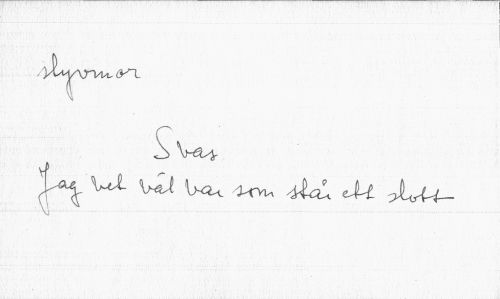 slyvmor
Svas
Jag vet väl var som står ett slott